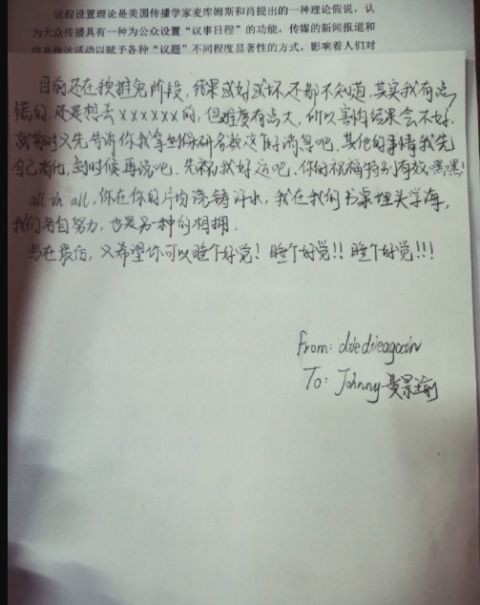 议程设置理论是美国传播学家麦库姆斯和肖提出的一种理论假说，认
为大众传播具有一种为公众设置“议事日程”的功能，传媒的新闻报道和
信息传达活动以赋予各种“议题”不同程度显著性的方式，影响着人们对
目前还在预推免阶段，结果或好或坏还都不知道，其实我有点
慌的，还是想去xxxxxx的，但难度有点大，所以害怕结果会不好.
到时又先告诉你我拿到保研名额这个好消息吧，其他的事情我先
自己消化，到时候再说吧. 先祝我好运吧，你的祝福特别有效，嘿嘿！
all in all，你在你的片场挥洒汗水，我在我的书桌埋头学海，
我们各自努力，也是另一种的相拥.
写在最后，又希望你可以睡个好觉！睡个好觉!! 睡个好觉!!!
From: diedieagain
To: Johnny 黄景瑜